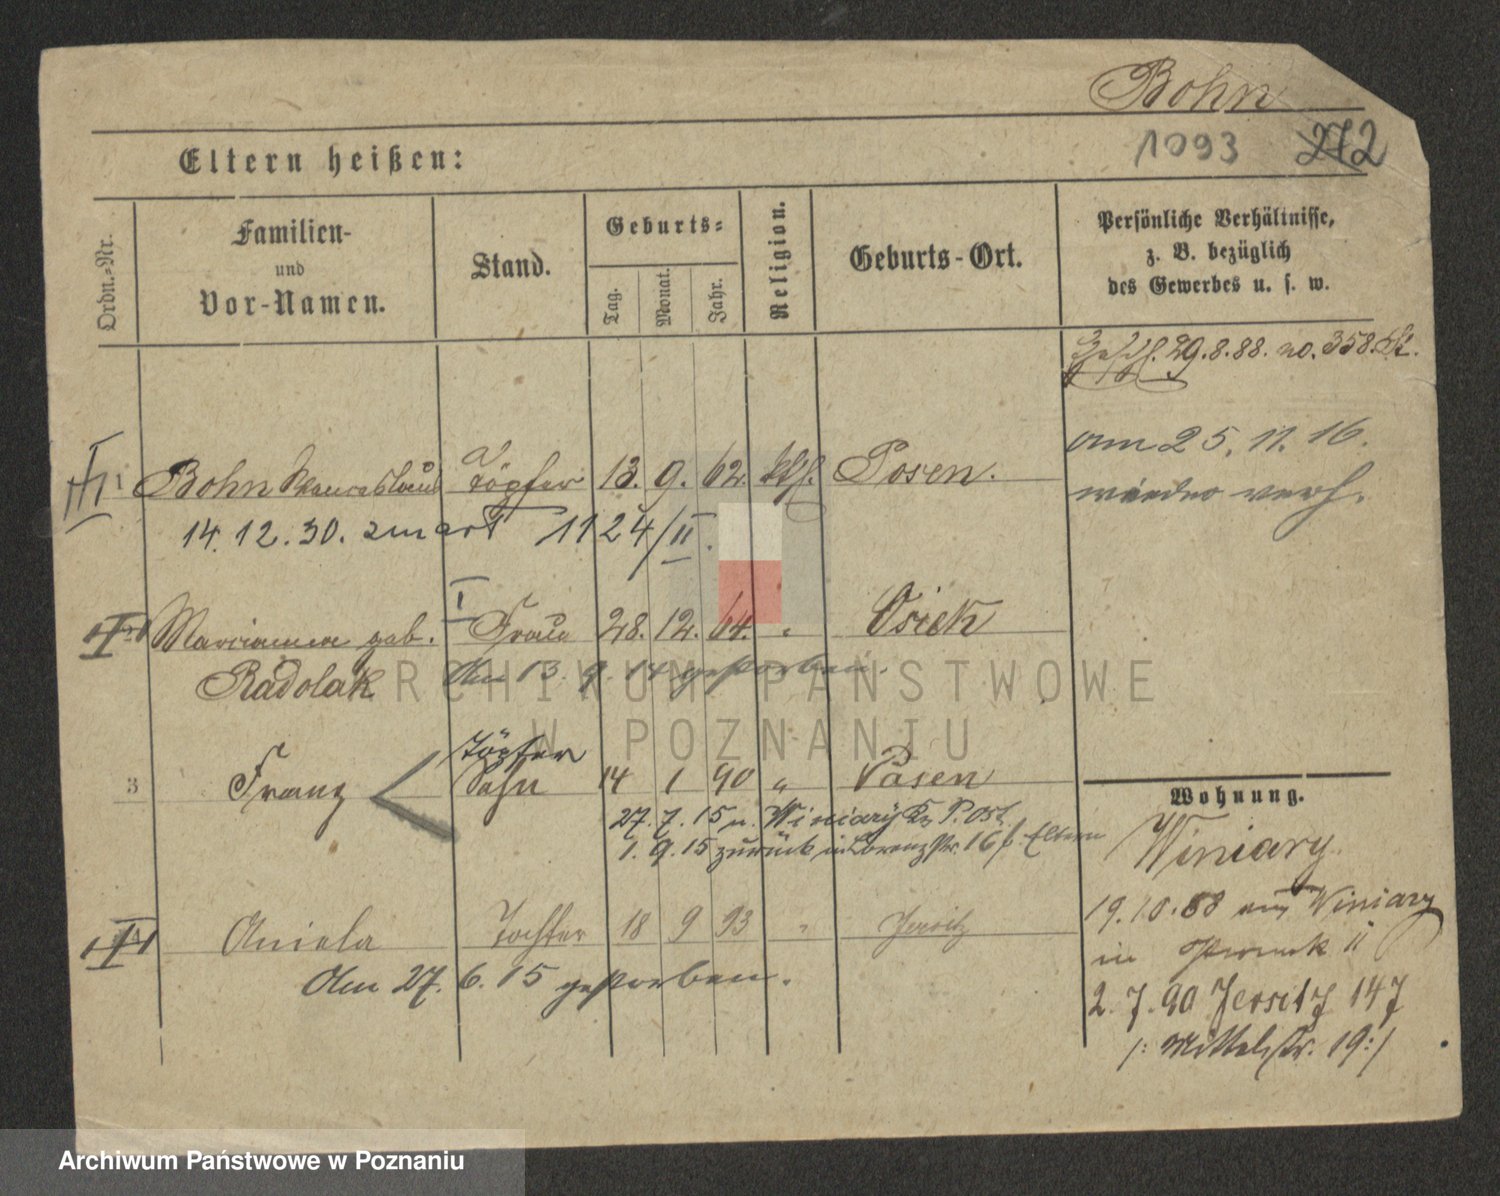 Bohn
1093 272
Eltern heißen:
Ordn.-Nr.
Familien-
und
Vor-Namen.
Stand.
Geburts-
Tag.
Monat.
Jahr.
Religion.
Geburts-Ort.
Persönliche Verhältnisse,
z. B. bezüglich
des Gewerbes u. s. w.
29.8.88. no. 358.
am 25. 11. 16.
wieder verh.
1 Bohn Töpfer 13. 9. 62. kth. Posen.
14. 12. 30. zmarł 1124/II.
Marianna geb. Frau 28. 12. 64. " Osiek
Radolak Am 13. 9. 14 gestorben.
ARCHIWUM PAŃSTWOWE
W POZNANIU
Töpfer
3 Franz Sohn 14 1 90 " Posen
27. 7. 15 n. Winiary
1. 9. 15 zurück in Lorenzstr. 16 b. Eltern
Wohnung.
Winiary
19.10.88 aus Winiary
in
2. 7. 90 Jersitz 147
/: Mittelstr. 19 :/
Aniela Tochter 18 9 93 " Jersitz
Am 27. 6. 15 gestorben.
Archiwum Państwowe w Poznaniu